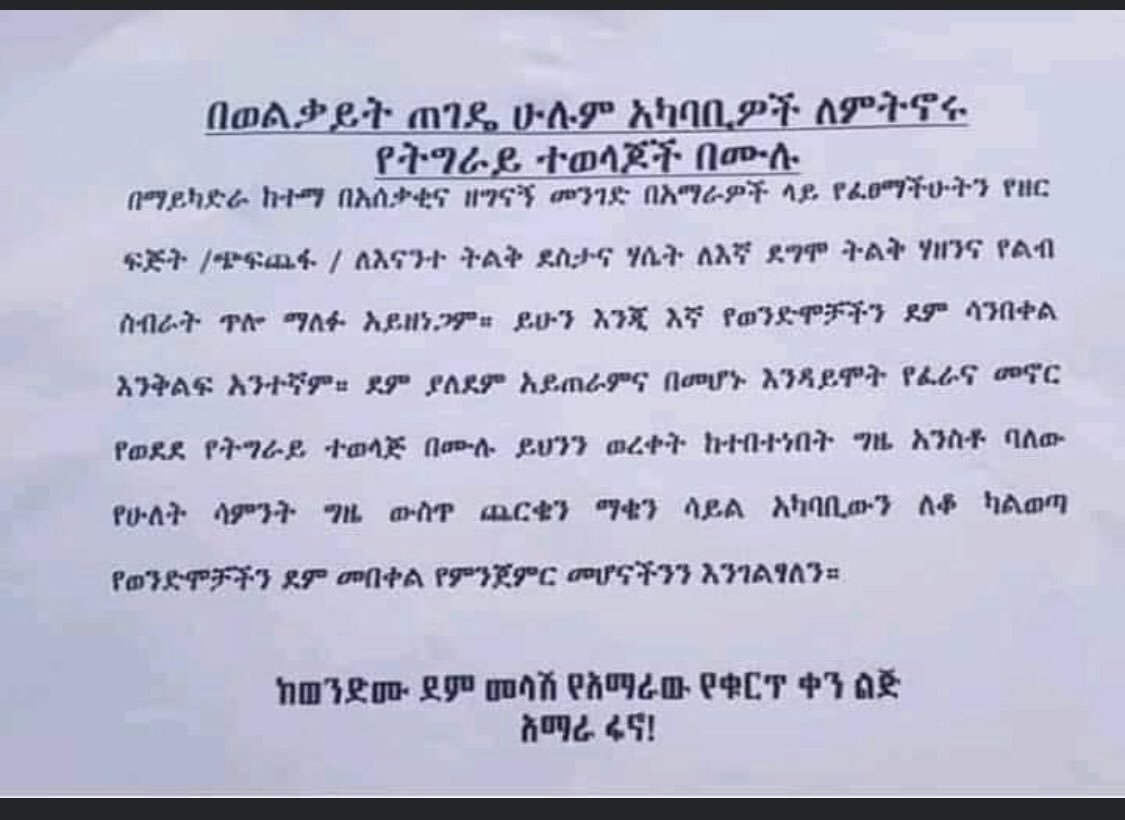 በወልቃይት ጠገዴ ሁሉም አካባቢዎች ለምትኖሩ
የትግራይ ተወላጆች በሙሉ
በማይካድራ ከተማ በአሰቃቂና ዘግናኝ መንገድ በአማራዎች ላይ የፈፀማችሁትን የዘር
ፍጅት /ጭፍጨፋ / ለእናንተ ትልቅ ደስታና ሃሴት ለእኛ ደግሞ ትልቅ ሃዘንና የልብ
ስብራት ጥሎ ማለፉ አይዘነጋም። ይሁን እንጂ እኛ የወንድሞቻችን ደም ሳንበቀል
እንቅልፍ አንተኛም። ደም ያለደም አይጠራምና በመሆኑ እንዳይሞት የፈራና መኖር
የወደደ የትግራይ ተወላጅ በሙሉ ይህንን ወረቀት ከተበተነበት ግዜ አንስቶ ባለው
የሁለት ሳምንት ግዜ ውስጥ ጨርቁን ማቁን ሳይል አካባቢውን ለቆ ካልወጣ
የወንድሞቻችን ደም መበቀል የምንጀምር መሆናችንን እንገልፃለን።
ከወንድሙ ደም መላሽ የአማራው የቁርጥ ቀን ልጅ
አማራ ፋኖ!